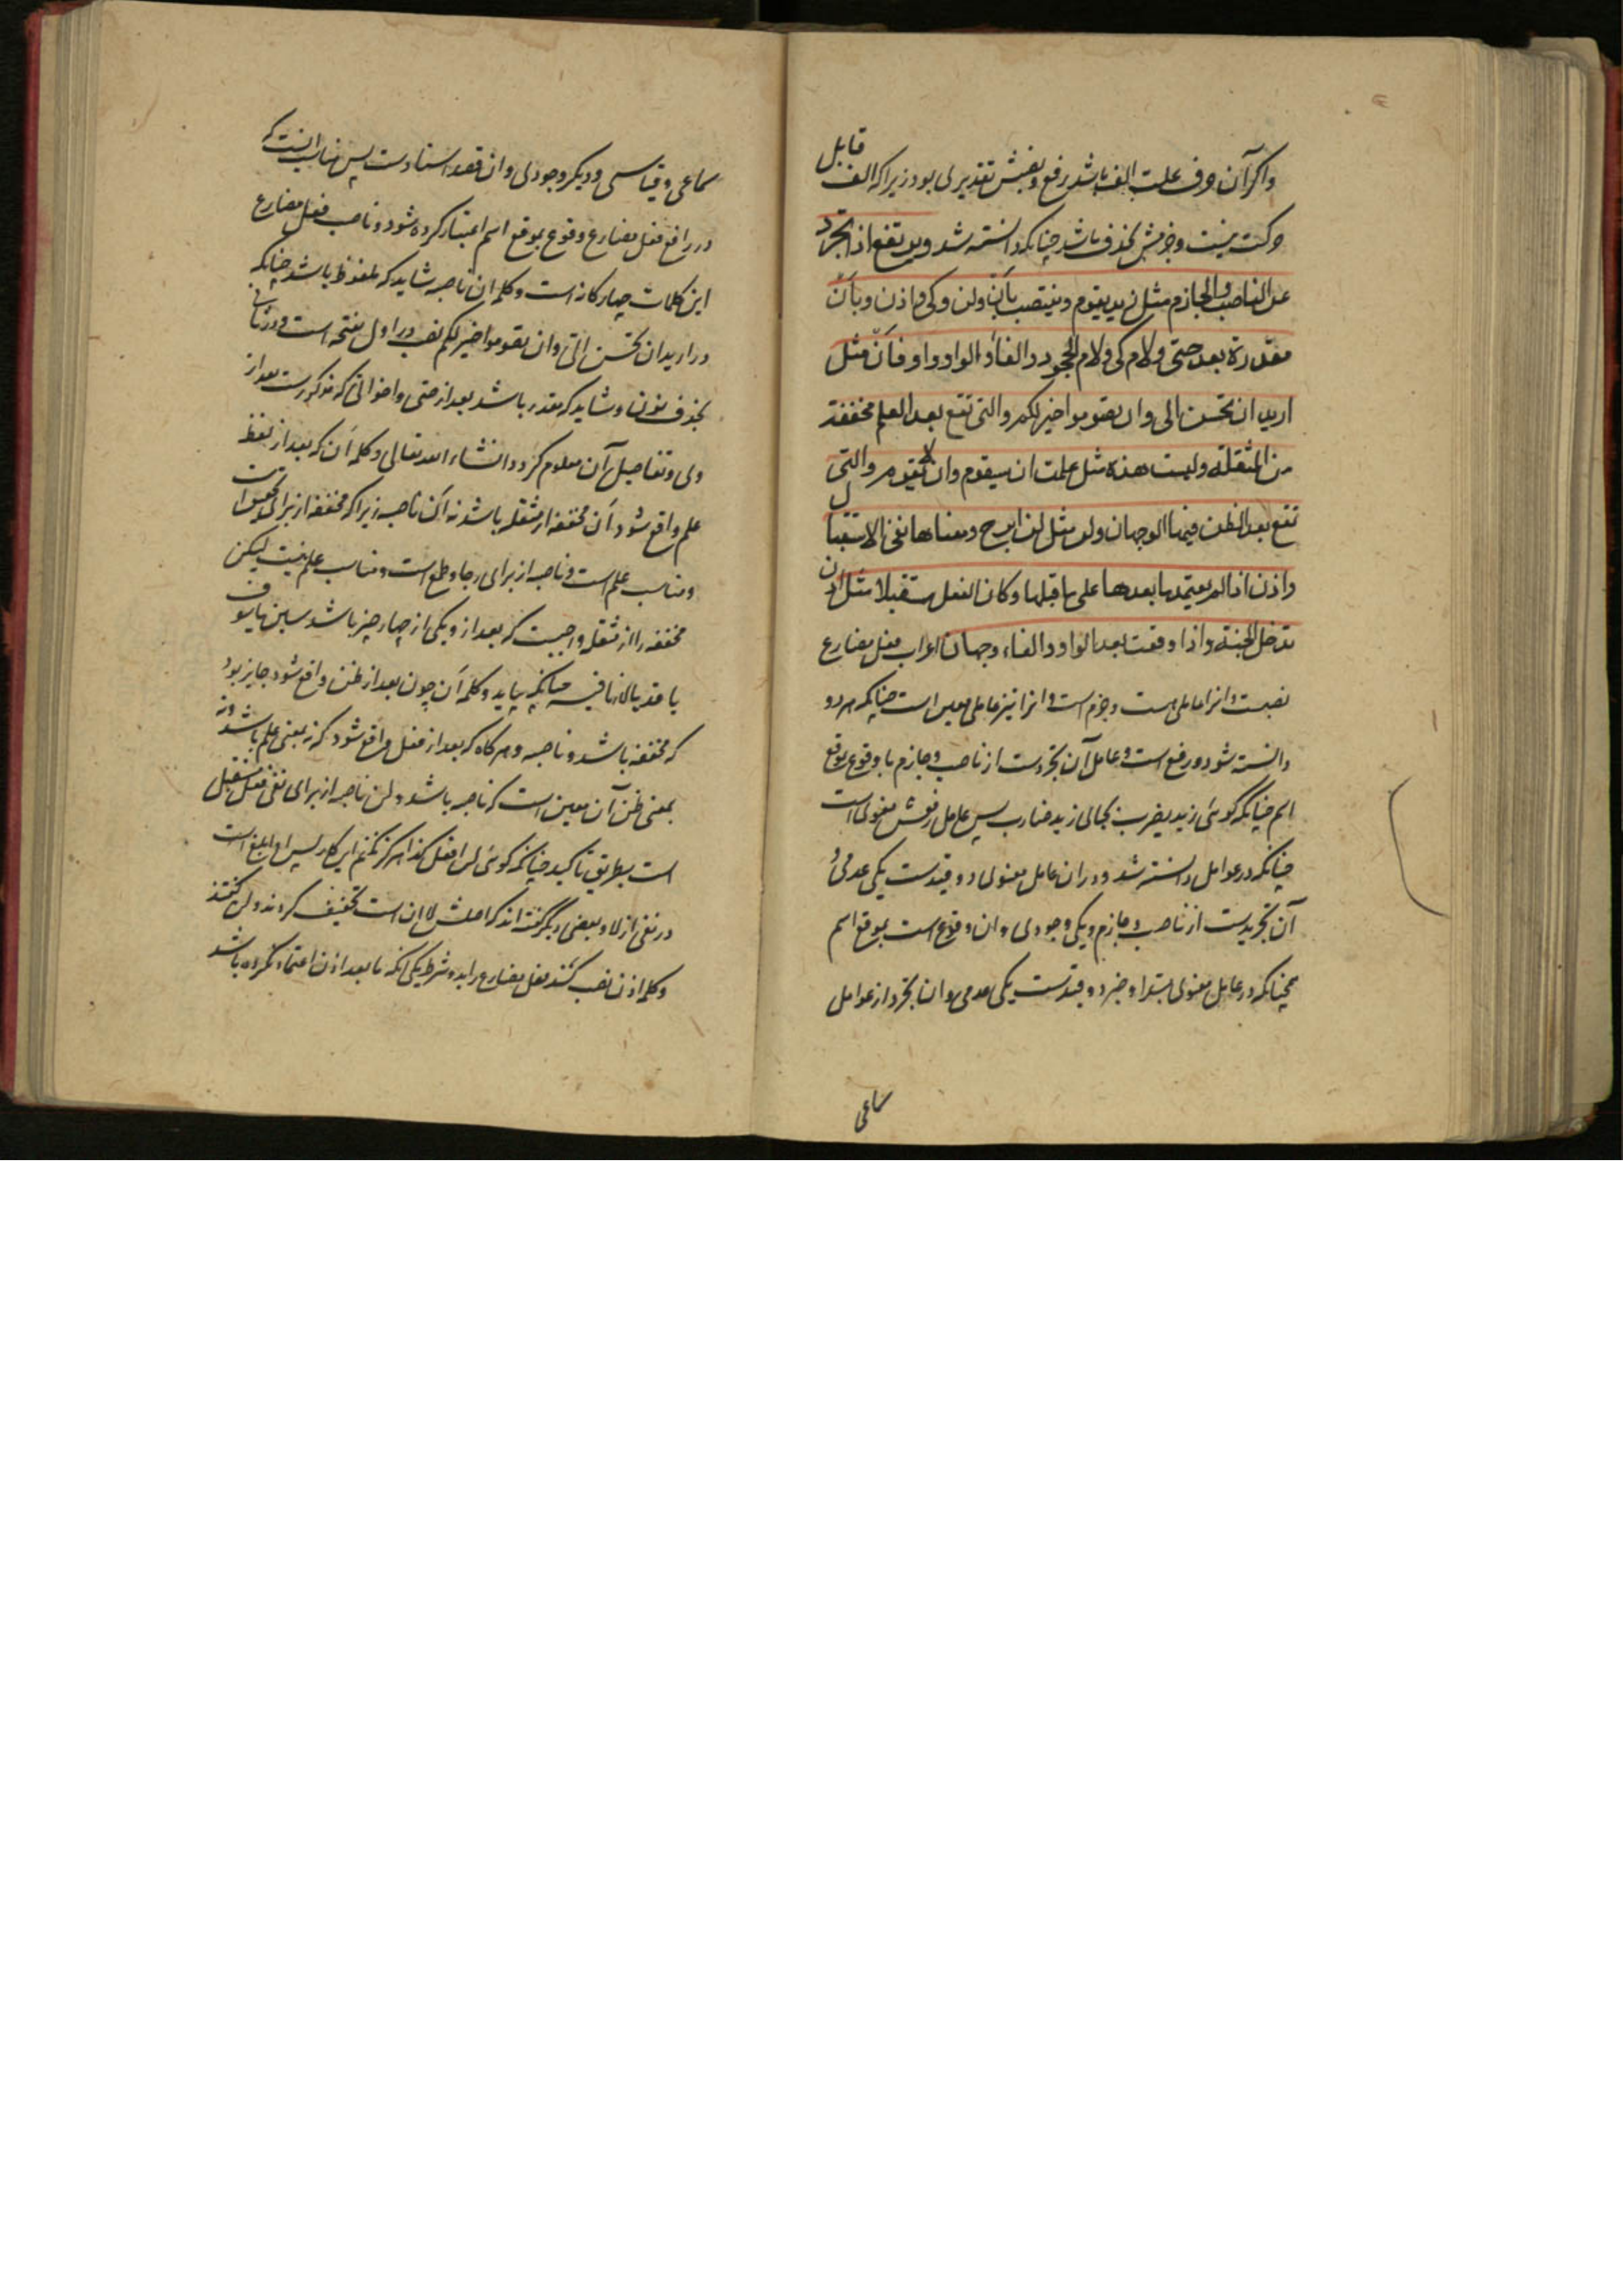 واکر آن حرف علت الف باشد رفع و نصبش تقدیری بود زیرا که الف قابل
حرکت نیست و جزمش بحذف باشد چنانکه دانسته شد ویرتفع اذا تجرد
عن الناصب والجازم مثل زید یقوم وینتصب بأن ولن وکی واذن وبأن
مقدرة بعد حتی ولام کی ولام الجحود والفاء والواو واو فأن مثل
ارید ان تحسن الی وان تصوموا خیر لکم والتی تقع بعد العلم مخففة
من المثقلة ولیست هذه مثل علمت ان سیقوم وان لا یقوم والتی
تقع بعد الظن ففیها الوجهان ولن مثل لن ابرح ومعناها نفی الاستقبال
واذن اذا لم یعتمد ما بعدها علی ما قبلها وکان الفعل مستقبلا مثل اذن
تدخل الجنة واذا وقعت بعد الواو والفاء وجهان اعراب فعل مضارع
نصبست و انرا عاملی هست و جزم است و انرا نیز عاملی معین است چنانکه هر دو
دانسته شود و رفع است و عامل آن تجردست از ناصب و جازم یا وقوع بموقع
اسم چنانکه کوئی زید یضرب بجای زید ضارب پس عامل رفعش معنوی است
چنانکه در عوامل دانسته شد و در ان عامل معنوی دو قیدست یکی عدمی و
آن تجریدست از ناصب و جازم و یکی وجودی و ان وقوع است بموقع اسم
همچنانکه در عامل معنوی مبتدا و خبر دو قیدست یکی عدمی و ان تجرد از عوامل
سماعی
سماعی و قیاسی و دیکر وجودی و ان قصد اسنادست پس مناسب اینست که
در رافع فعل مضارع وقوع بموقع اسم اعتبار کرده شود و ناصب فعل مضارع
این کلمات چهارکانه است و کلمه ان ناصبه شاید که ملفوظ باشد چنانکه
در ارید ان تحسن الی و ان تصوموا خیر لکم نصب در اول بفتحه است و در ثانی
بحذف نون و شاید که مقدر باشد بعد از حتی و اخواتی که مذکورست بعد از
وی و تفاصیل آن معلوم کردد انشاء الله تعالی و کلمه أن که بعد از لفظ
علم واقع شود أن مخففه از مثقله باشد نه أن ناصبه زیرا که مخففه از برای تحقیق است
و مناسب علم است و ناصبه از برای رجا و طمع است و مناسب علم نیست لیکن
مخففه را از مثقله واجبست که بعد از وی یکی از چهار چیز باشد سین یا سوف
یا قد یا لا نافیه چنانکه بیاید و کلمه أن چون بعد از ظن واقع شود جایز بود
که مخففه باشد و ناصبه و هر کاه که بعد از فعل واقع شود که نه بمعنی علم باشد و نه
بمعنی ظن آن معین است که ناصبه باشد و لن ناصبه از برای نفی فعل مستقبل
است بطریق تاکید چنانکه کوئی لن افعل کذا هرکز نکنم این کار پس او ابلغ است
در نفی از لا و بعضی دیکر کفته اند که اصلش لا ان است تخفیف کردند و لن کفتند
و کلمه اذن نصب کند فعل مضارع را بدو شرط یکی انکه ما بعد اذن اعتماد نکرده باشد